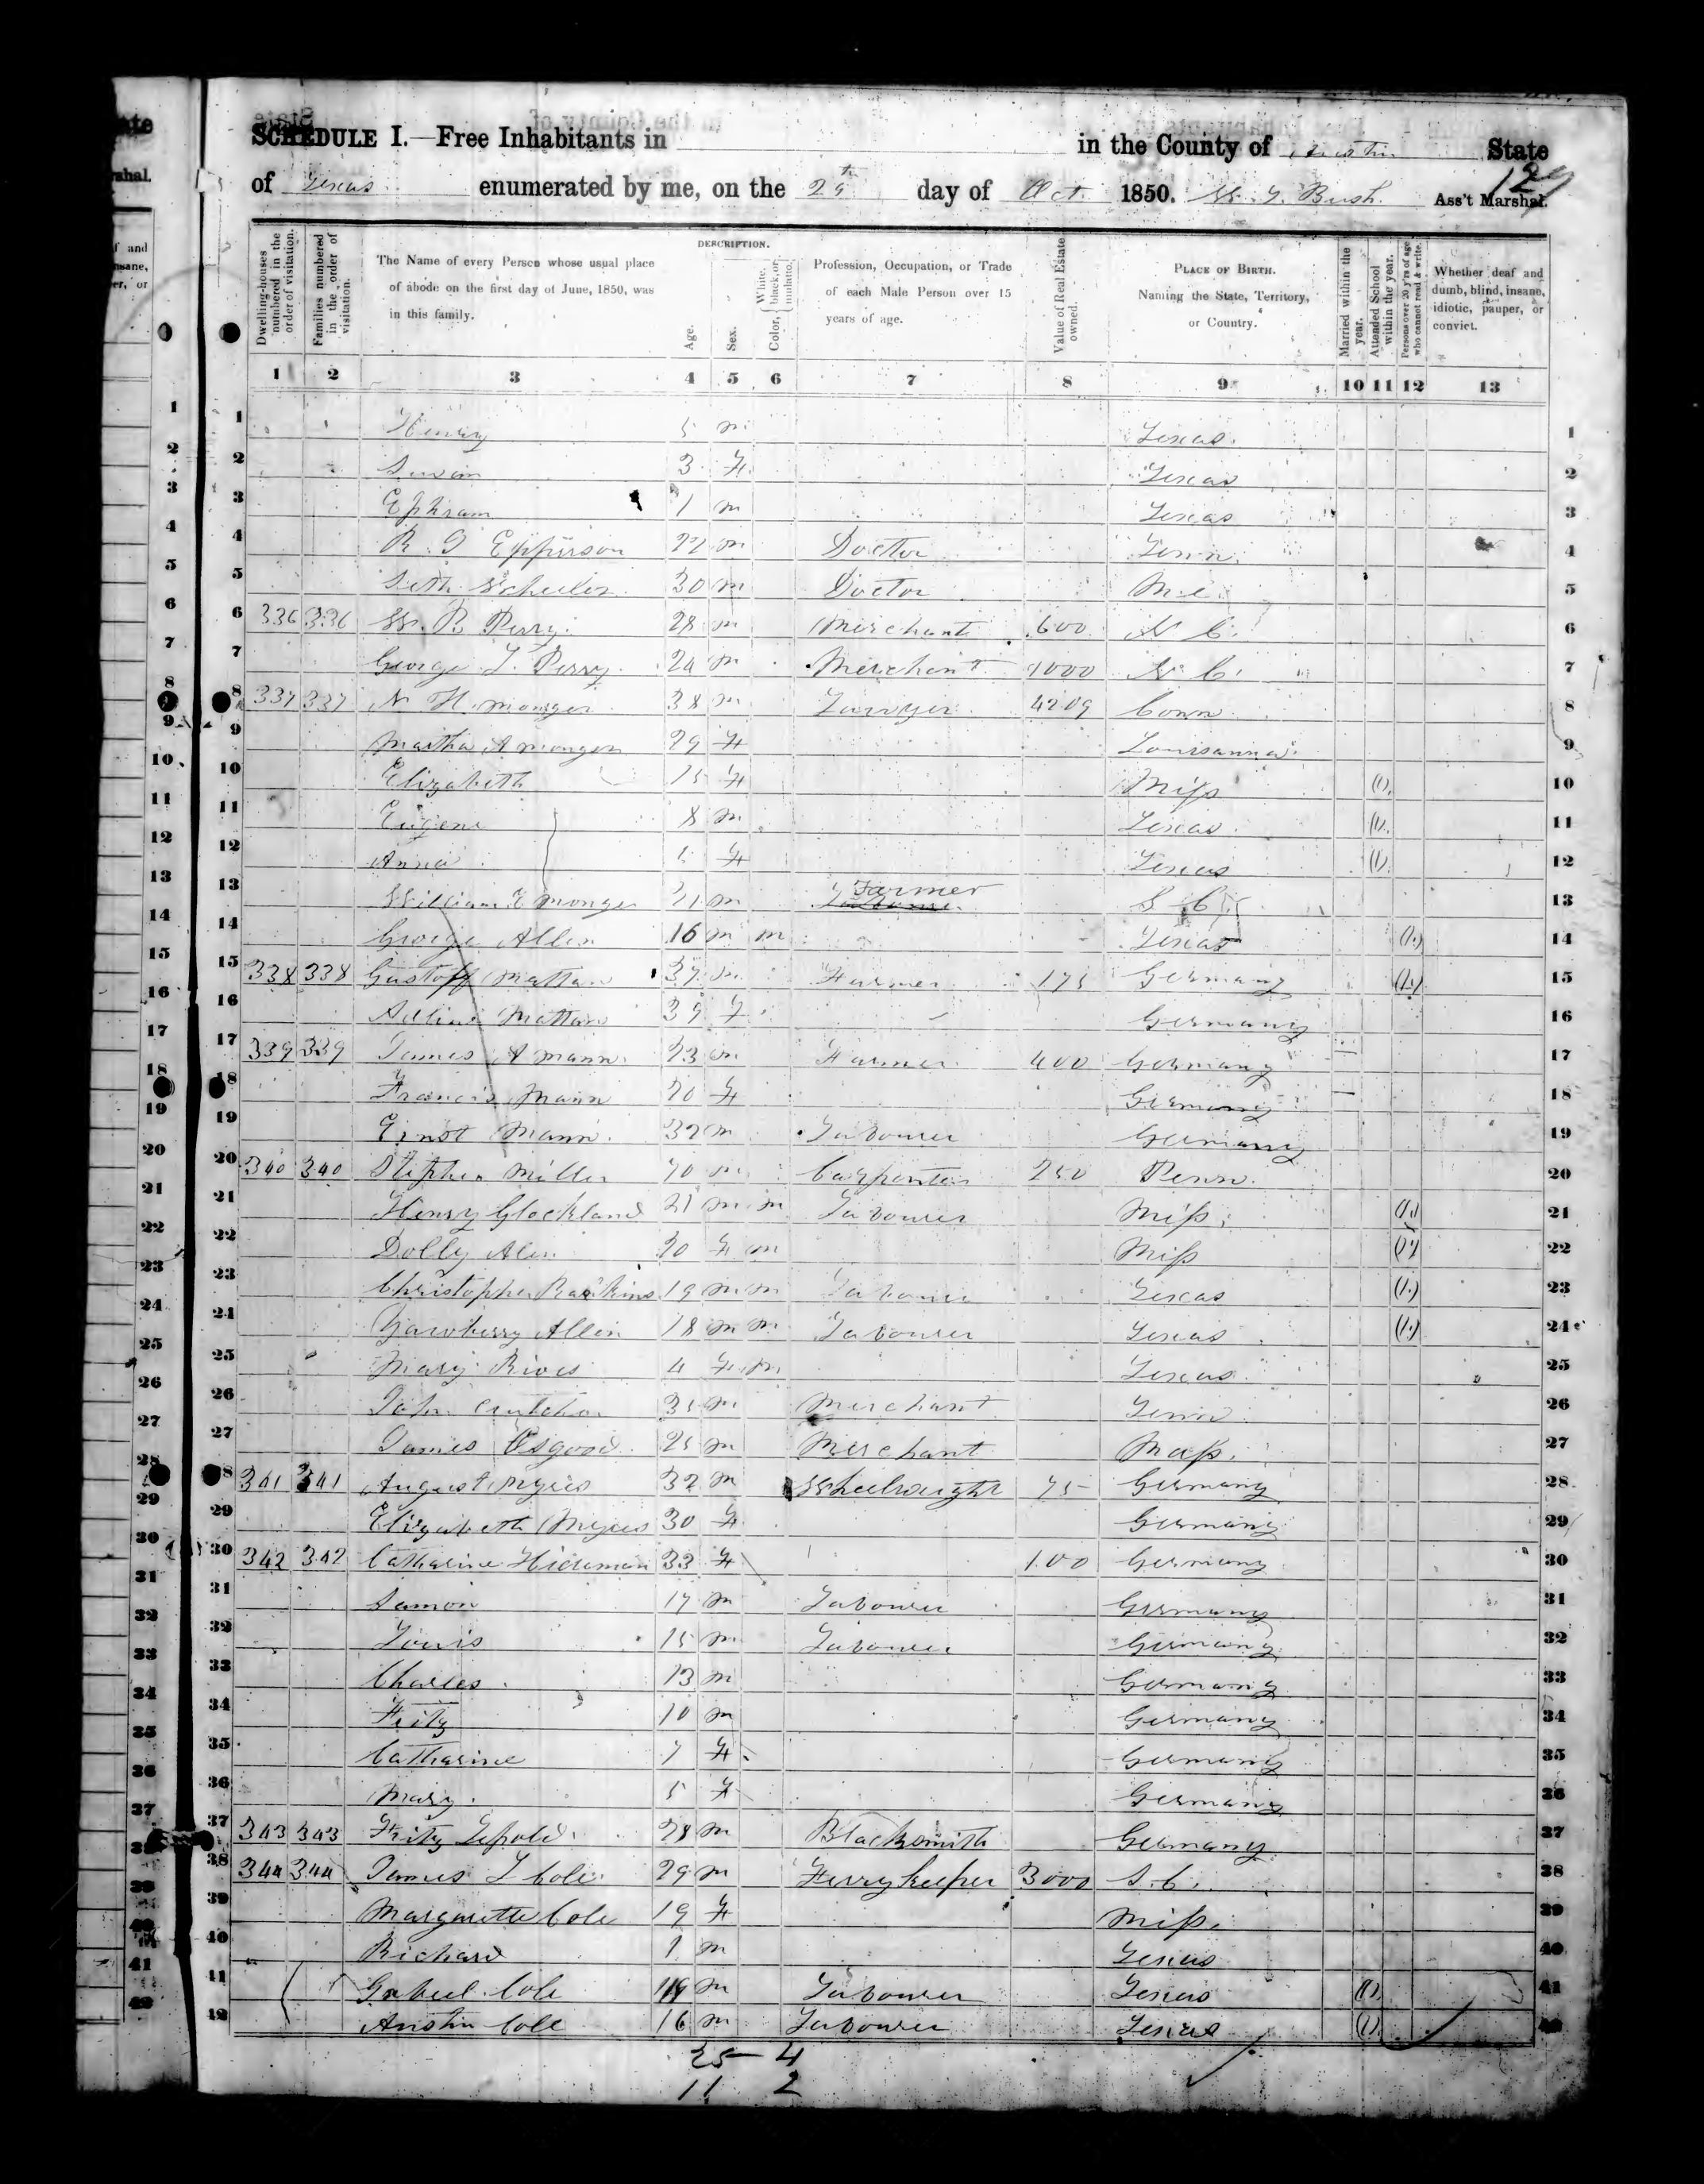 SCHEDULE I.—Free Inhabitants in in the County of Austin State
of Texas enumerated by me, on the 29th day of Oct 1850. Bush. Ass't Marshal.
129
DESCRIPTION.
Dwelling-houses numbered in the order of visitation.
Families numbered in the order of visitation.
The Name of every Person whose usual place of abode on the first day of June, 1850, was in this family.
Age.
Sex.
Color, White, black, or mulatto.
Profession, Occupation, or Trade of each Male Person over 15 years of age.
Value of Real Estate owned.
PLACE OF BIRTH. Naming the State, Territory, or Country.
Married within the year.
Attended School within the year.
Persons over 20 y'rs of age who cannot read & write.
Whether deaf and dumb, blind, insane, idiotic, pauper, or convict.
1 2 3 4 5 6 7 8 9 10 11 12 13
1 Henry 5 m Texas. 1
2 3 F Texas 2
3 Ephram 1 m Texas 3
4 R. Epperson m Doctor Tenn. 4
5 Seth 30 m Doctor Me. 5
6 336 336 W. R. Perry. 28 m Merchant 600 N C. 6
7 George Perry. 24 m Merchant 1000 N C. 7
8 337 337 N H Monger 38 m Lawyer 4209 Conn 8
9 Martha A Monger 29 F Louisanna 9
10 Elizabeth 15 F Miss (1). 10
11 Eugene 8 m Texas. (1). 11
12 Anna F Texas (1). 12
13 William Monger 21 m Farmer S C 13
14 George Allen 16 m m Texas (1.) 14
15 338 338 Gustoff Mattan 37 m Farmer 175 Germany (1.) 15
16 Mattan 39 F Germany 16
17 339 339 James A Mann. 23 m Farmer. 400 Germany 17
18 Francis Mann 20 F Germany 18
19 Ernst Mann. 32 m Labourer Germany 19
20 340 340 Stephen Miller m Carpenter 250 Penn. 20
21 Henry Glockland 21 m m Labourer Miss. (1.) 21
22 Dolly Alen F m Miss (1.) 22
23 Christopher 19 m m Labourer Texas (1.) 23
24 Allen 18 m m Labourer Texas (1.) 24
25 Mary Rives 4 F m Texas. 25
26 John 35 m Merchant Tenn 26
27 James Osgood. 25 m Merchant Mass. 27
28 341 341 August Myers 32 m Wheelwright 75 Germany 28
29 Elizabeth Myers 30 F Germany 29
30 342 342 Catharine 33 F 100 Germany 30
31 Samon 17 m Labourer Germany 31
32 Louis 15 m Labourer Germany 32
33 Charles. 13 m Germany 33
34 Fritz 10 m Germany 34
35 Catharine 7 F Germany 35
36 Mary. 5 F Germany 36
37 343 343 Fritz Lepold. 28 m Blacksmith Germany 37
38 344 344 James L Cole 29 m Ferry keeper 3000 S. C. 38
39 Margarette Cole 19 F Miss. 39
40 Richard 1 m Texas 40
41 Cole 19 m Labourer Texas (1). 41
42 Austin Cole 16 m Labourer Texas (1). 42
25 4
11 2